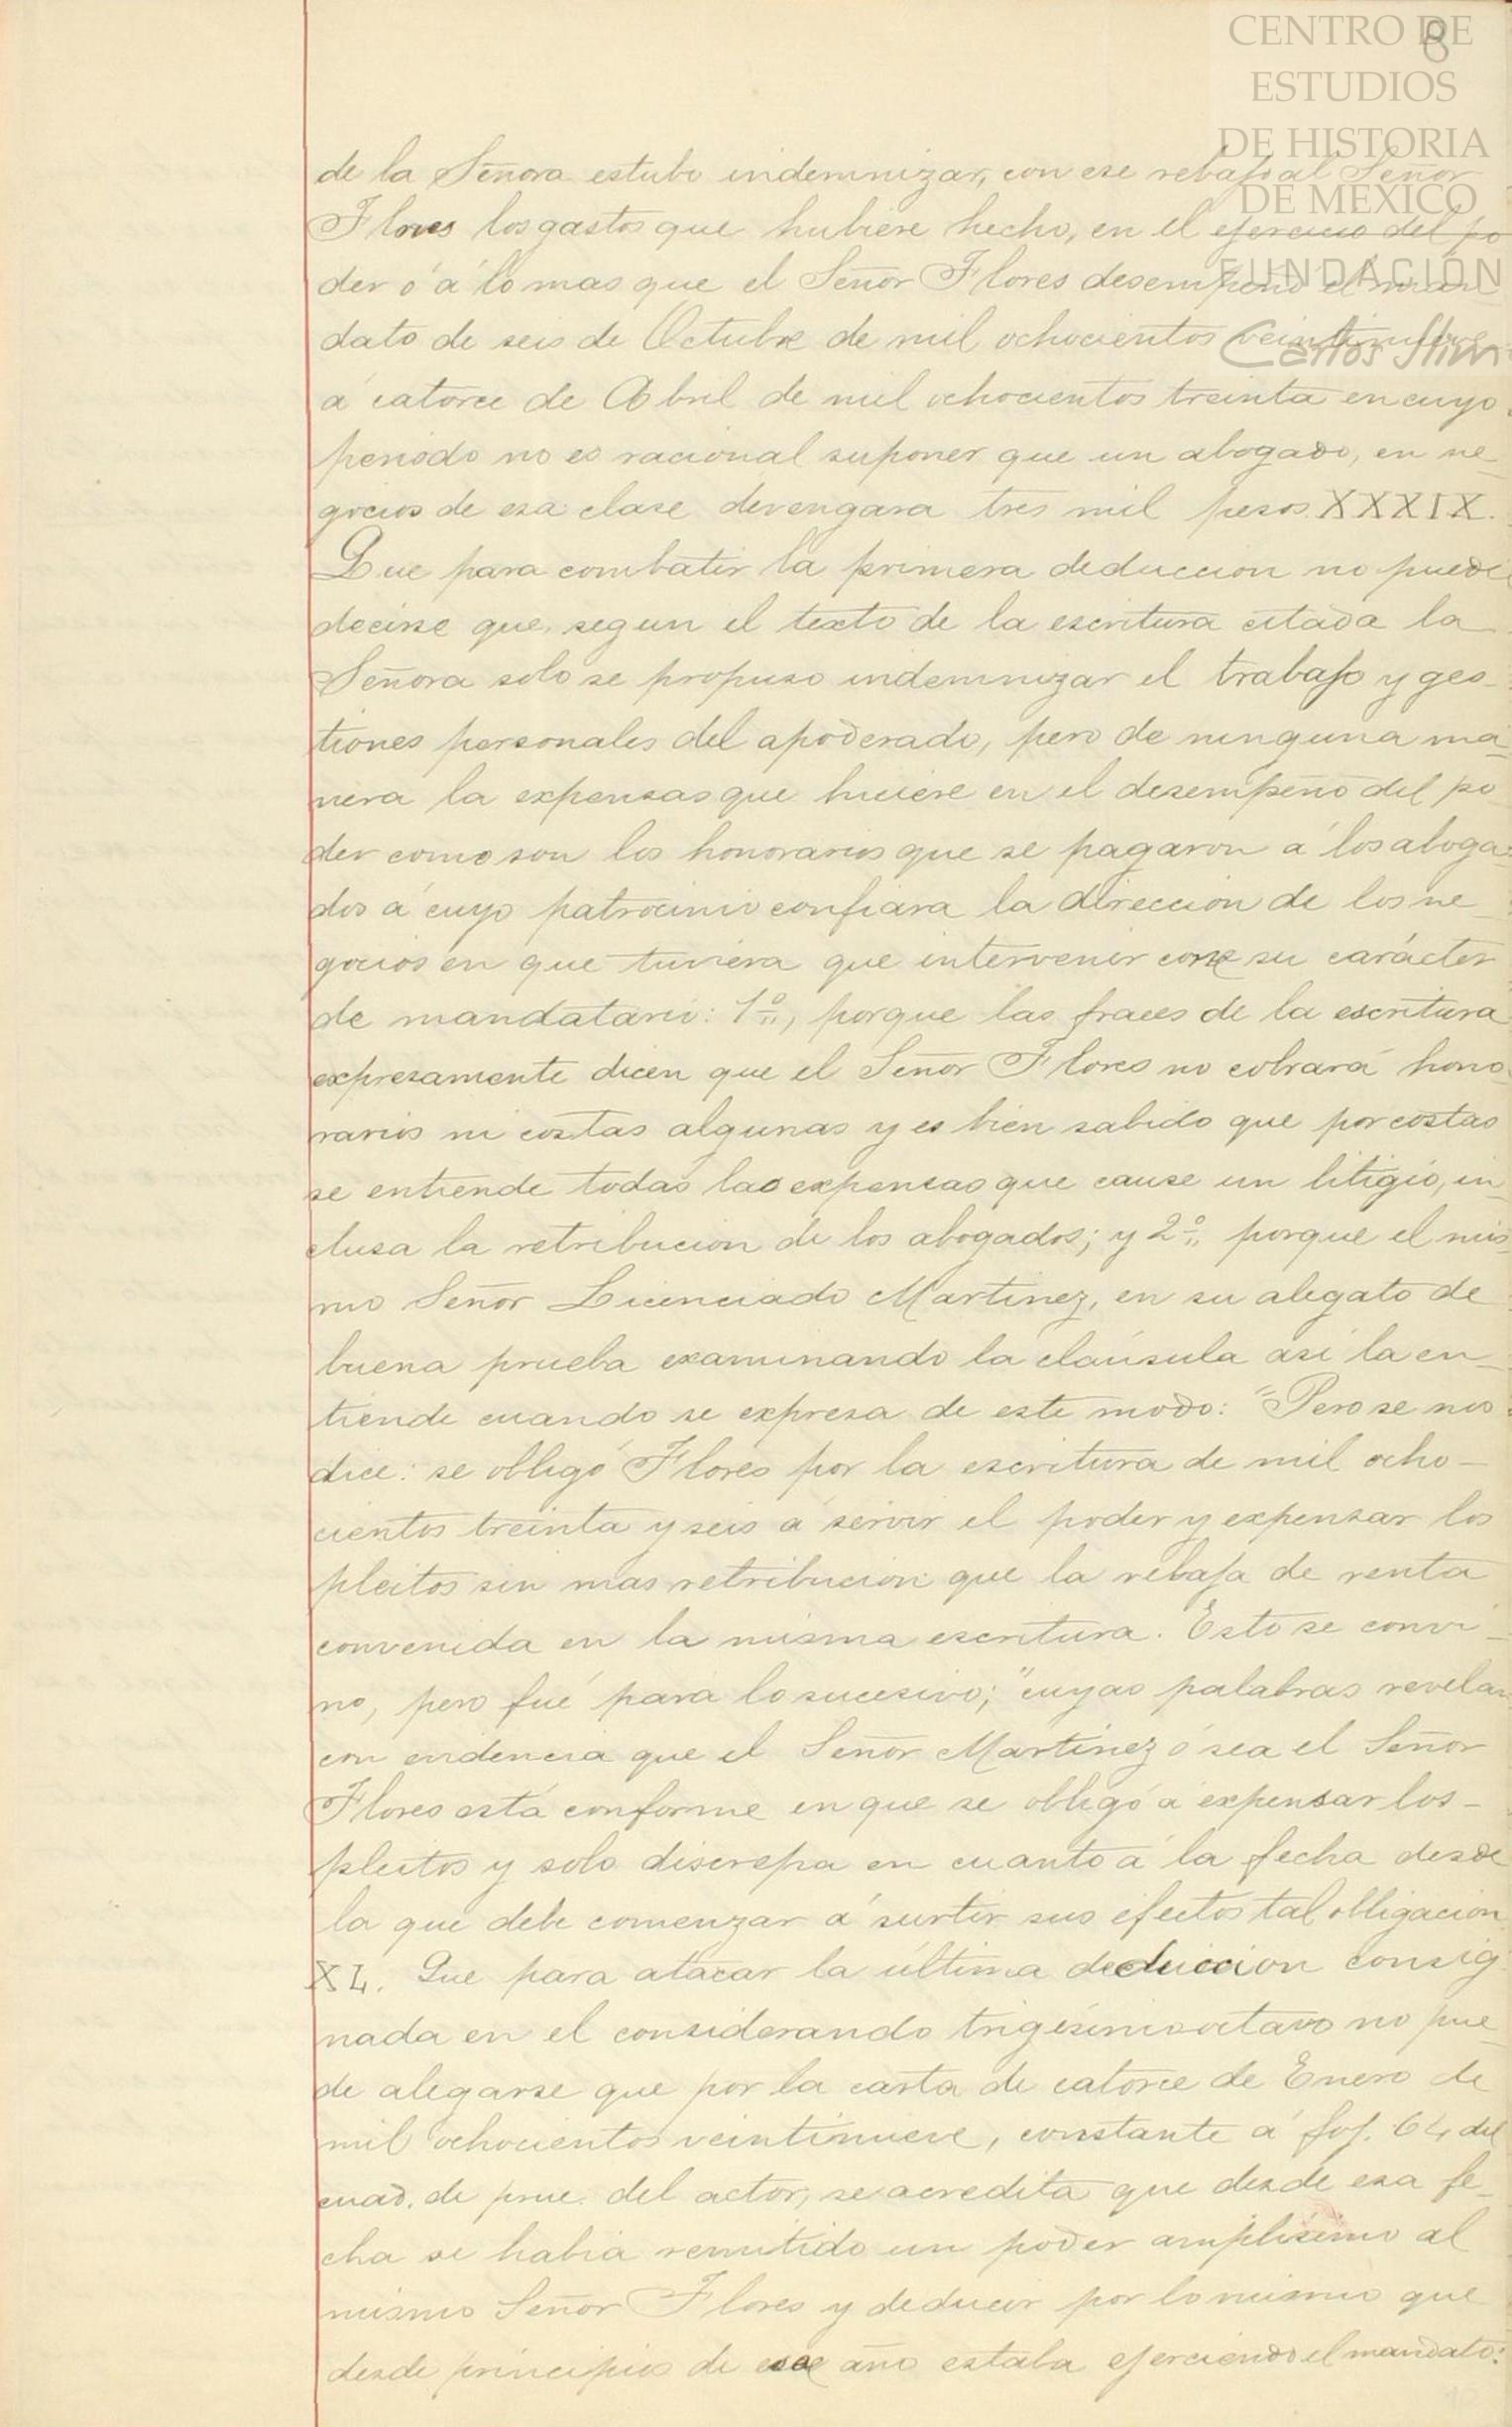 CENTRO DE
ESTUDIOS
DE HISTORIA
DE MÉXICO
FUNDACIÓN
Carlos Slim
8
de la Señora estubo indemnizar, con ese rebajo al Señor
Flores los gastos que hubiere hecho, en el ejercicio del po
der ó á lo mas que el Señor Flores desempeñó el man
dato de seis de Octubre de mil ochocientos veintinueve
á catorce de Abril de mil ochocientos treinta en cuyo
periodo no es racional suponer que un abogado, en ne_
gocios de esa clase devengara tres mil pesos. XXXIX.
Que para combatir la primera deduccion no puede
decirse que, segun el texto de la escritura citada la
Señora solo se propuso indemnizar el trabajo y ges_
tiones personales del apoderado, pero de ninguna ma_
nera la expensas que hiciere en el desempeño del po_
der como son los honorarios que se pagaron á los aboga_
dos á cuyo patrocinio confiara la direccion de los ne_
gocios en que tuviera que intervenir con su carácter
de mandatario: 1º, porque las fraces de la escritura
expresamente dicen que el Señor Flores no cobrará hono_
rarios ni costas algunas y es bien sabido que por costas
se entiende todas las expensas que cause un litigio, in_
clusa la retribucion de los abogados; y 2º, porque el mis_
mo Señor Licenciado Martinez, en su alegato de
buena prueba examinando la claúsula asi la en_
tiende cuando se expresa de este modo: "Pero se nos
dice: se obligó Flores por la escritura de mil ocho_
cientos treinta y seis á servir el poder y expensar los
pleitos sin mas retribucion que la rebaja de renta
convenida en la misma escritura. Esto se convi_
no, pero fué para lo sucesivo;" cuyas palabras revelan
con evidencia que el Señor Martinez ó sea el Señor
Flores está conforme en que se obligó á expensar los_
pleitos y solo discrepa en cuanto á la fecha desde
la que debe comenzar á surtir sus efectos tal obligacion
XL. Que para atacar la última deduccion consig_
nada en el considerando trigésimo octavo no pue_
de alegarse que por la carta de catorce de Enero de
mil ochocientos veintinueve, constante á foj. 64 del
cuad. de prue. del actor, se acredita que desde esa fe_
cha se habia remitido un poder amplísimo al
mismo Señor Flores y deducir por lo mismo que
desde principios de ese año estaba ejerciendo el mandato: